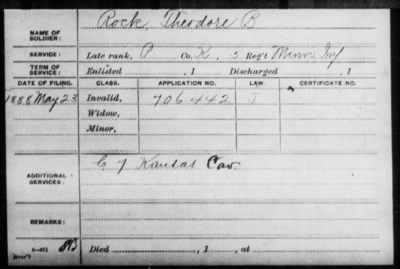 Rock, Theodore B
NAME OF SOLDIER:
SERVICE: Late rank, P Co. K, 5 Reg't Minn Inf
TERM OF SERVICE: Enlisted , 1 Discharged , 1
DATE OF FILING. CLASS. APPLICATION NO. LAW. CERTIFICATE NO.
1888, May 23 Invalid, 706442 J
Widow,
Minor,
C 7 Kansas Cav.
ADDITIONAL SERVICES:
REMARKS:
Died , 1 , at